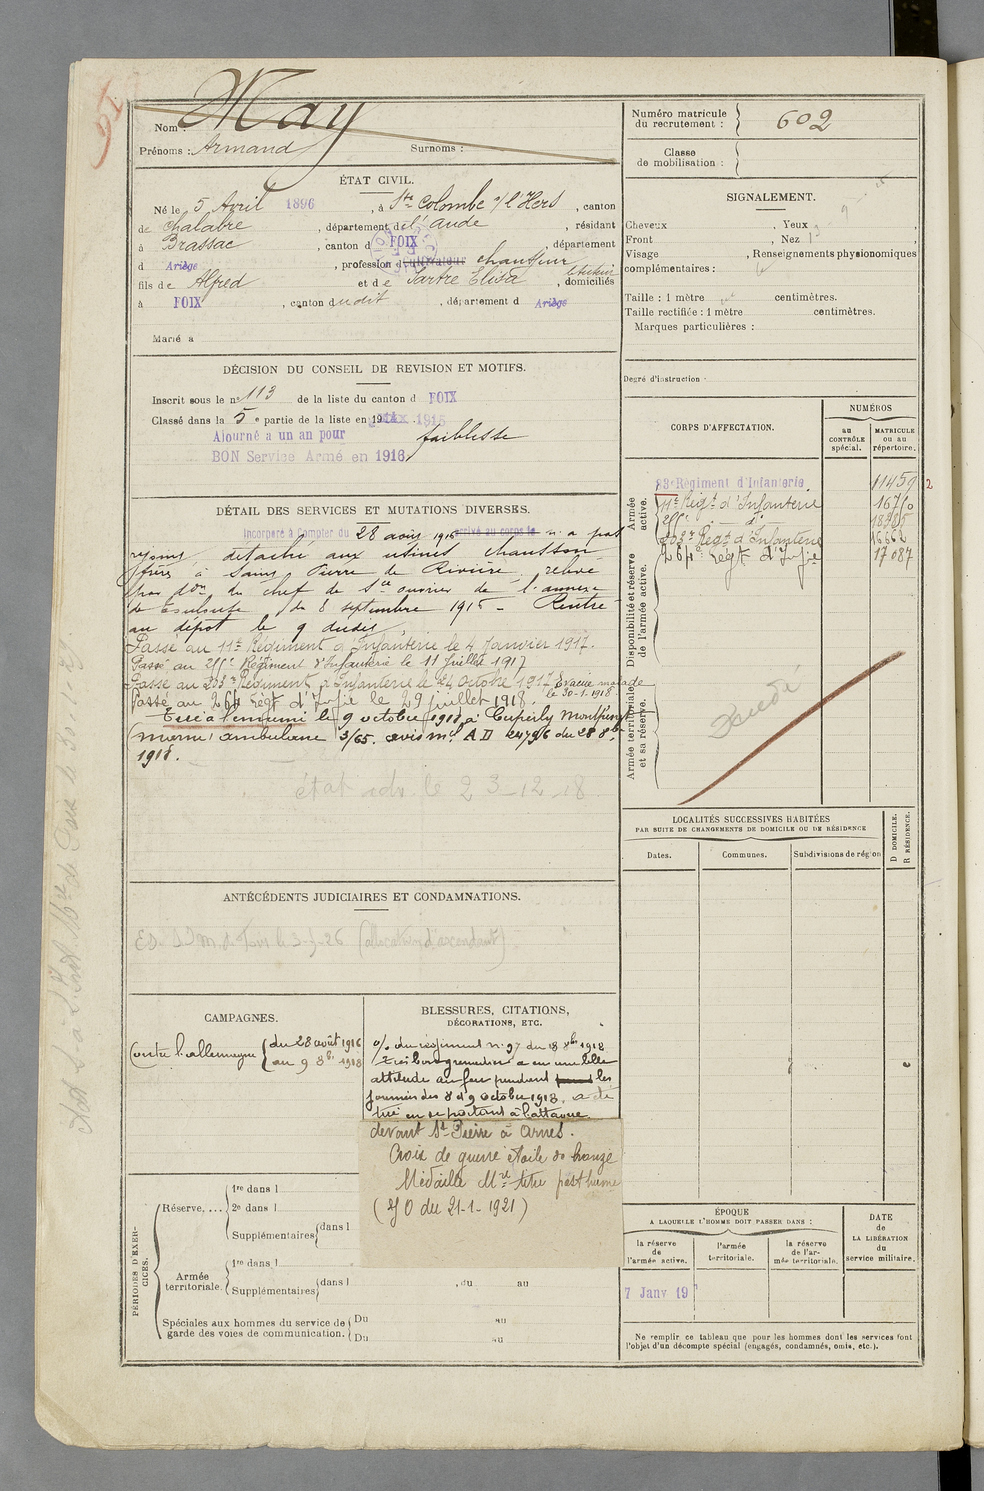 Nom : May
Prénoms : Armand Surnoms :
Numéro matricule du recrutement : 602
Classe de mobilisation :
ÉTAT CIVIL.
Né le 5 Avril 1896, à Ste Colombe s/ l'Hers, canton
de Chalabre, département de l'Aude, résidant
à Brassac, canton d FOIX, département
d Ariège, profession d cultivateur chauffeur
fils de Alfred et de Sartre Elisa, domiciliés
à FOIX, canton dudit, département d Ariège
Marié à
SIGNALEMENT.
Cheveux , Yeux ,
Front , Nez ,
Visage , Renseignements physionomiques
complémentaires :
Taille : 1 mètre centimètres.
Taille rectifiée : 1 mètre centimètres.
Marques particulières :
Degré d'instruction
DÉCISION DU CONSEIL DE REVISION ET MOTIFS.
Inscrit sous le n° 113 de la liste du canton d FOIX
Classé dans la 5e partie de la liste en 19 1915
Ajourné a un an pour faiblesse
BON Service Armé en 1916.
CORPS D'AFFECTATION.
NUMÉROS
au CONTRÔLE spécial.
MATRICULE ou au répertoire.
Armée active.
83e Régiment d'Infanterie 11459 2
11e Régt d'Infanterie
d°
203e Régt d'Infanterie 16662
264e Régt d'Infie 17087
Disponibilité et réserve de l'armée active.
Armée territoriale et sa réserve.
DÉTAIL DES SERVICES ET MUTATIONS DIVERSES.
Incorporé à compter du 28 août 1916 arrivé au corps le n'a pas
rejoint détaché aux usines Chausson
frères à Saint Pierre de Rivière, relevé
par don du chef de Sce ouvrier de l'annexe
de Toulouse du 8 septembre 1916 - Rentré
au dépôt le 9 dudit
Passé au 11e Régiment d'Infanterie le 4 Janvier 1917.
Passé au Régiment d'Infanterie le 11 Juillet 1917
Passé au 203e Régiment d'Infanterie le 24 octobre 1917 Evacué malade
le 30-1-1918
Passé au 264 Régt d'Infie le 29 juillet 1918.
Tué à l'ennemi le 9 octobre 1918, à Cuperly
(Marne) ambulance 3/65. avis ml A D du 28 8bre
1918.
état adv. le 23-12-18
LOCALITÉS SUCCESSIVES HABITÉES
PAR SUITE DE CHANGEMENTS DE DOMICILE OU DE RÉSIDENCE
Dates. Communes. Subdivisions de région
D DOMICILE.
R RÉSIDENCE.
ANTÉCÉDENTS JUDICIAIRES ET CONDAMNATIONS.
(allocation d'ascendant)
CAMPAGNES.
Contre l'allemagne du 28 août 1916
au 9 8bre 1918
BLESSURES, CITATIONS,
DÉCORATIONS, ETC.
du régiment n° 97 du 18 8bre 1918
Très bon grenadier a eu une belle
attitude au feu pendant les
journées des 8 et 9 octobre 1918. a été
tué en se portant à l'attaque
devant St Pierre à Arnes.
Croix de guerre étoile de bronze
Médaille Mre titre posthume
(JO du 21-1-1921)
PÉRIODES D'EXERCICES.
Réserve, ...
1re dans l
2e dans l
Supplémentaires dans l
Armée territoriale.
1re dans l , du au
Supplémentaires dans l
Spéciales aux hommes du service de garde des voies de communication.
Du au
Du au
ÉPOQUE
A LAQUELLE L'HOMME DOIT PASSER DANS :
la réserve de l'armée active.
l'armée territoriale.
la réserve de l'armée territoriale.
DATE de LA LIBÉRATION du service militaire.
7 Janv 19
Ne remplir ce tableau que pour les hommes dont les services font
l'objet d'un décompte spécial (engagés, condamnés, omis, etc.).